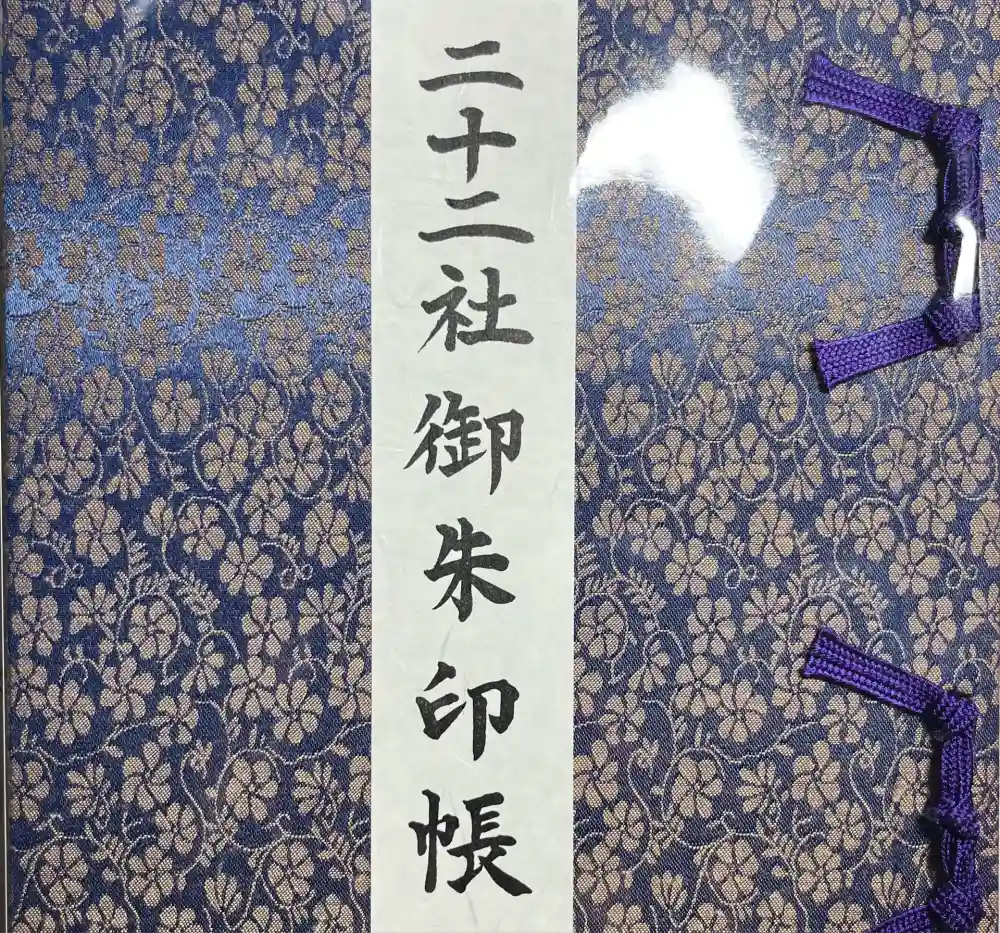 二十二社御朱印帳